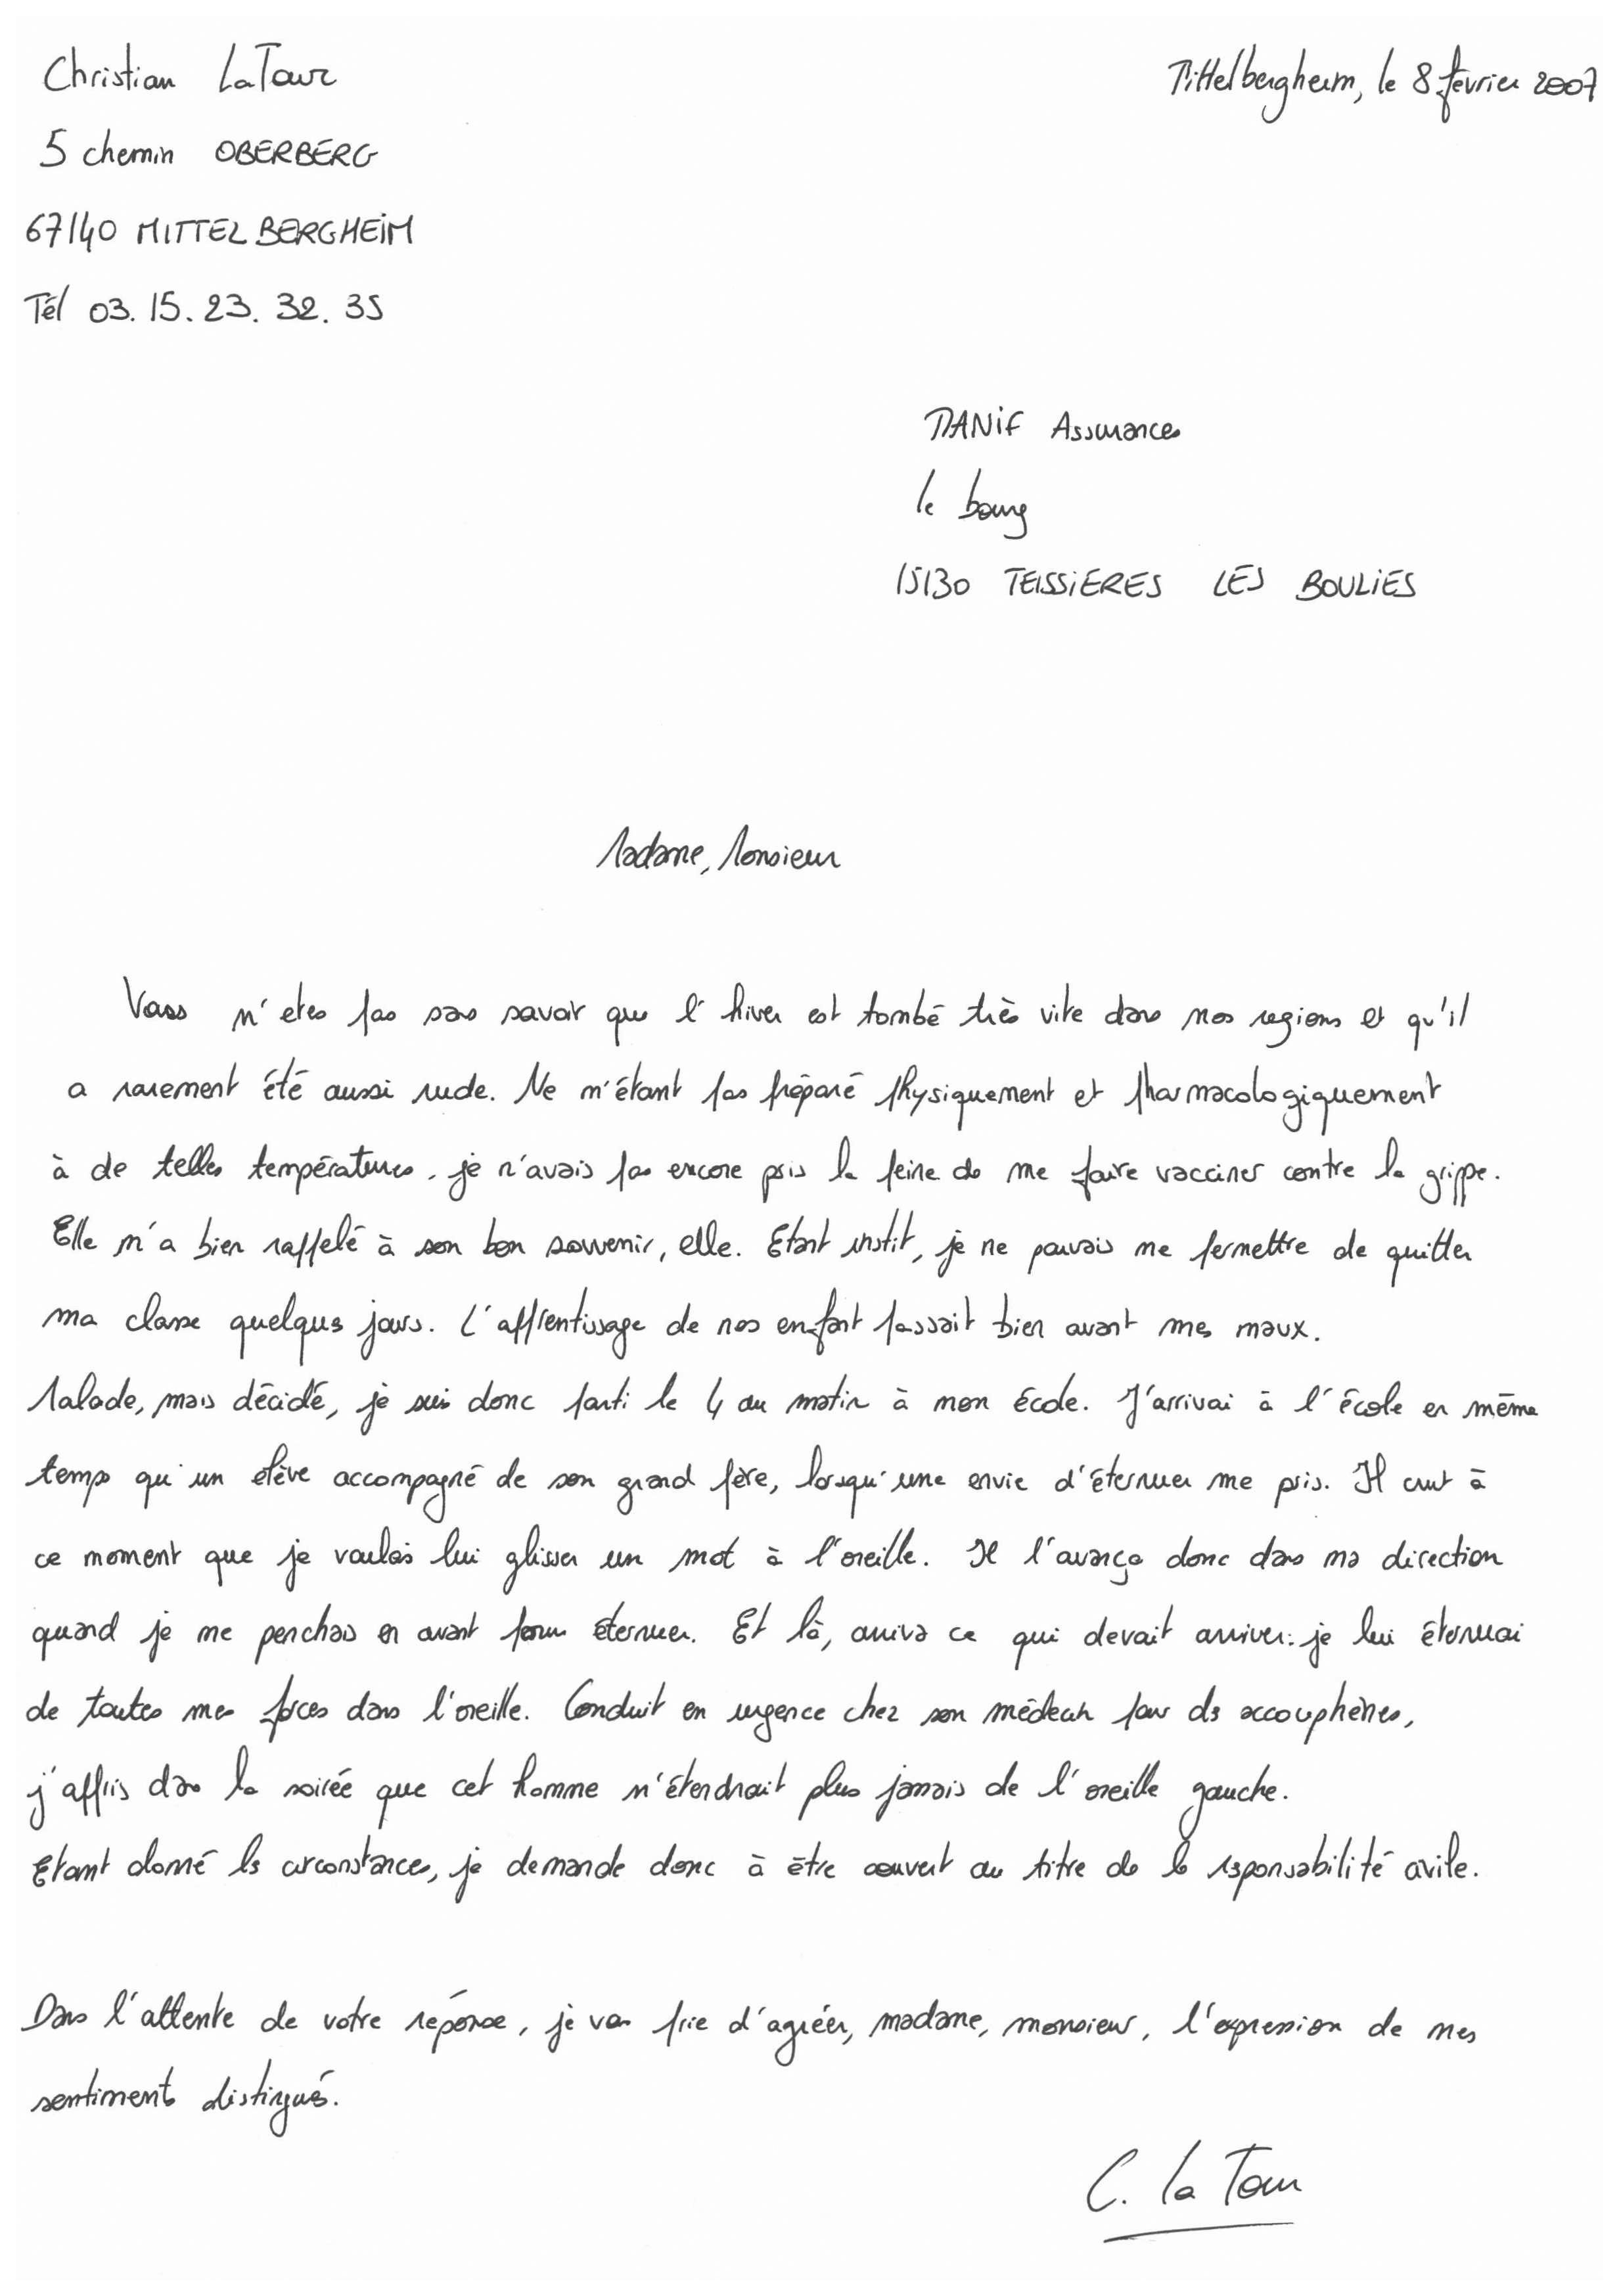 Christian LaTour
Mittelbergheim, le 8 février 2007
5 chemin OBERBERG
67140 MITTELBERGHEIM
Tél 03.15.23.32.35
MANIF Assurances
le bourg
15130 TEISSIERES LES BOULIES
Madame, Monsieur
Vous n'etes pas sans savoir que l'hiver est tombé très vite dans nos regions et qu'il
a rarement été aussi rude. Ne m'étant pas préparé physiquement et pharmacologiquement
à de telles températures, je n'avais pas encore pris la peine de me faire vacciner contre la grippe.
Elle m'a bien rappelé à son bon souvenir, elle. Etant instit, je ne pouvais me permettre de quitter
ma classe quelques jours. L'apprentissage de nos enfant passait bien avant mes maux.
Malade, mais décidé, je suis donc parti le 4 au matin à mon école. J'arrivai à l'école en même
temps qu'un elève accompagné de son grand père, lorsqu'une envie d'éternuer me pris. Il crut à
ce moment que je voulais lui glisser un mot à l'oreille. Il l'avança donc dans ma direction
quand je me penchais en avant pour éternuer. Et là, arriva ce qui devait arriver: je lui éternuai
de toutes mes forces dans l'oreille. Conduit en urgence chez son médecin pour des accouphènes,
j'appris dans la soirée que cet homme n'étendrait plus jamais de l'oreille gauche.
Etant donné les circonstances, je demande donc à être couvert au titre de la responsabilité civile.
Dans l'attente de votre réponse, je vous prie d'agréer, madame, monsieur, l'expression de mes
sentiments distingués.
C. La Tour